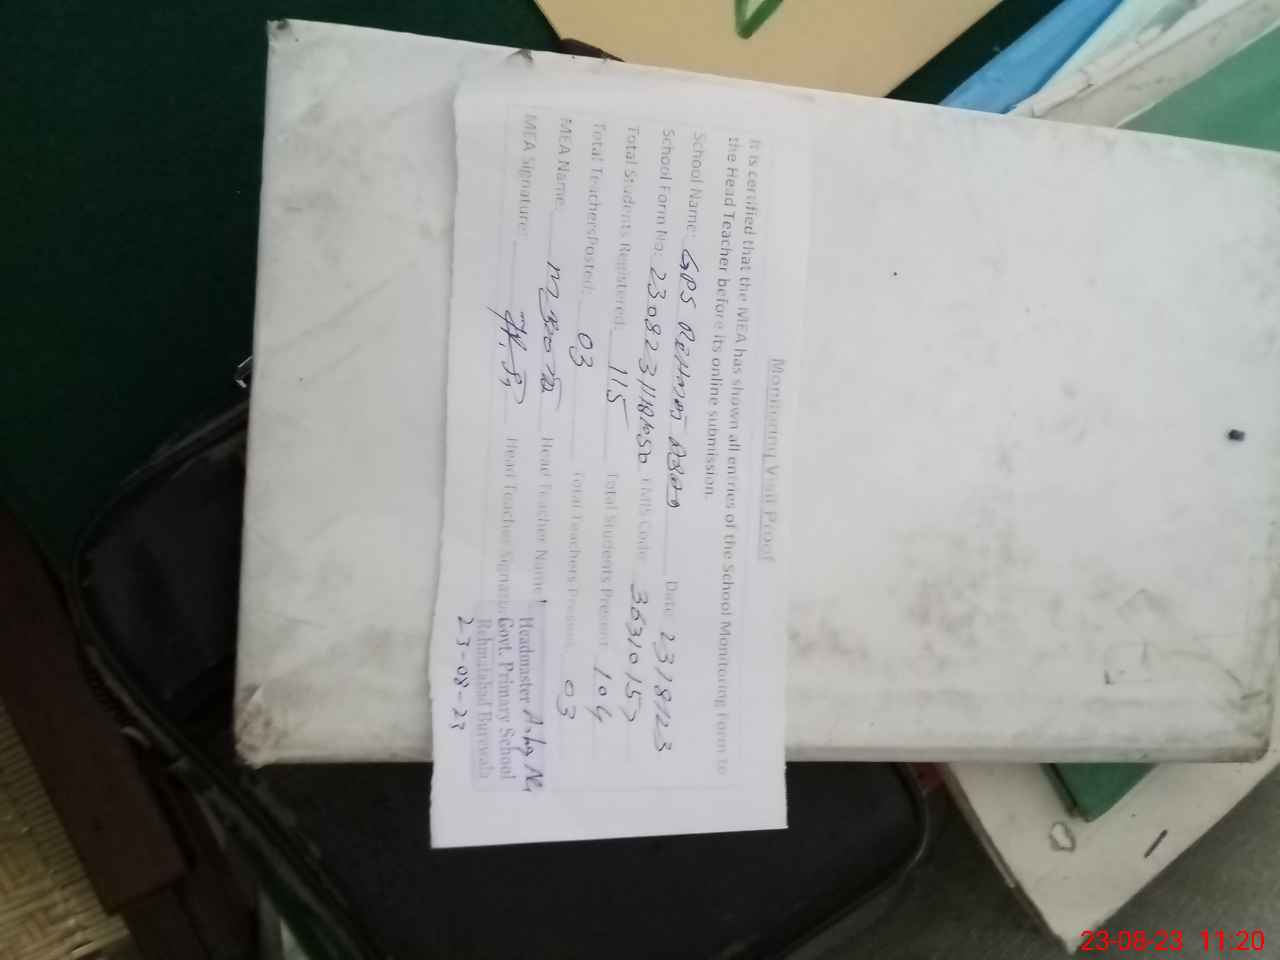 Monitoring Visit Proof
It is certified that the MEA has shown all entries of the School Monitoring Form to
the Head Teacher before its online submission.
School Name: GPS Date: 23/8/23
School Form No: EMIS Code:
Total Students Registered: 115 Total Students Present: 104
Total TeachersPosted: 03 Total Teachers Present: 03
MEA Name: Head Teacher Name:
MEA Signature: Head Teacher Signature
Headmaster
Govt. Primary School
Rehmatabad Burewala
23-08-23
23-08-23 11:20